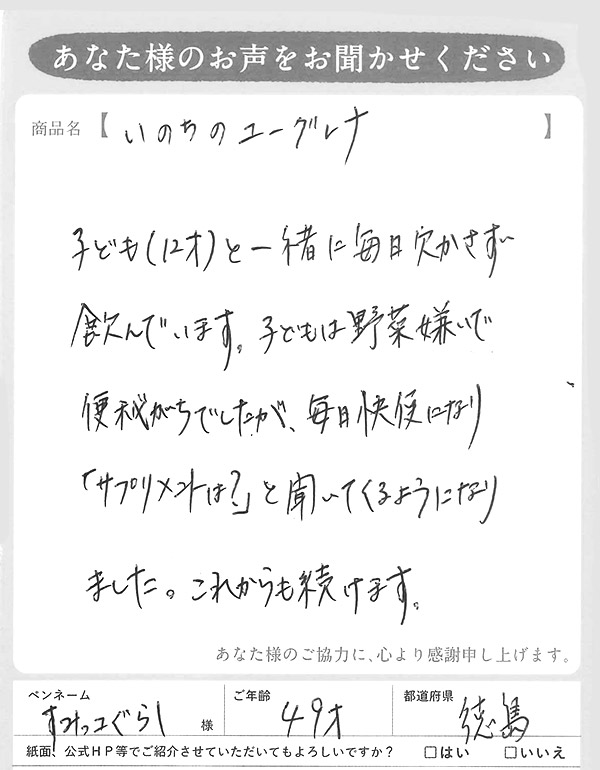 あなた様のお声をお聞かせください
商品名【 いのちのユーグレナ 】
子ども(12才)と一緒に毎日欠かさず
飲んでいます。子どもは野菜嫌いで
便秘がちでしたが、毎日快便になり
「サプリメントは?」と聞いてくるようになり
ました。これからも続けます。
あなた様のご協力に、心より感謝申し上げます。
ペンネーム ご年齢 都道府県
すみっコぐらし 様 49才 徳島
紙面、公式HP等でご紹介させていただいてもよろしいですか? □はい □いいえ